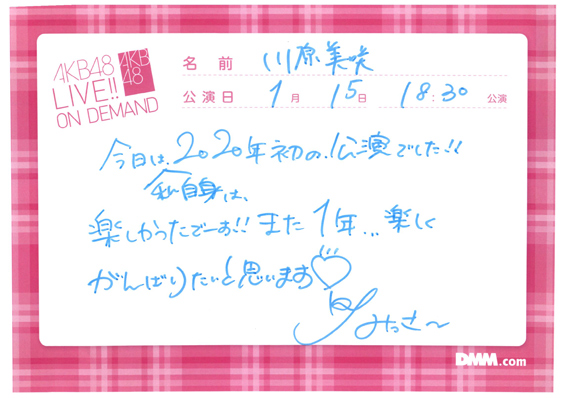 AKB48
LIVE!!
ON DEMAND
AKB
48
名前 川原美咲
公演日 1月 15日 18:30 公演
今日は、2020年初の、公演でした!!
私自身は、
楽しかったでーす!! また1年... 楽しく
がんばりたいと思います♡
by みっさ〜
DMM.com